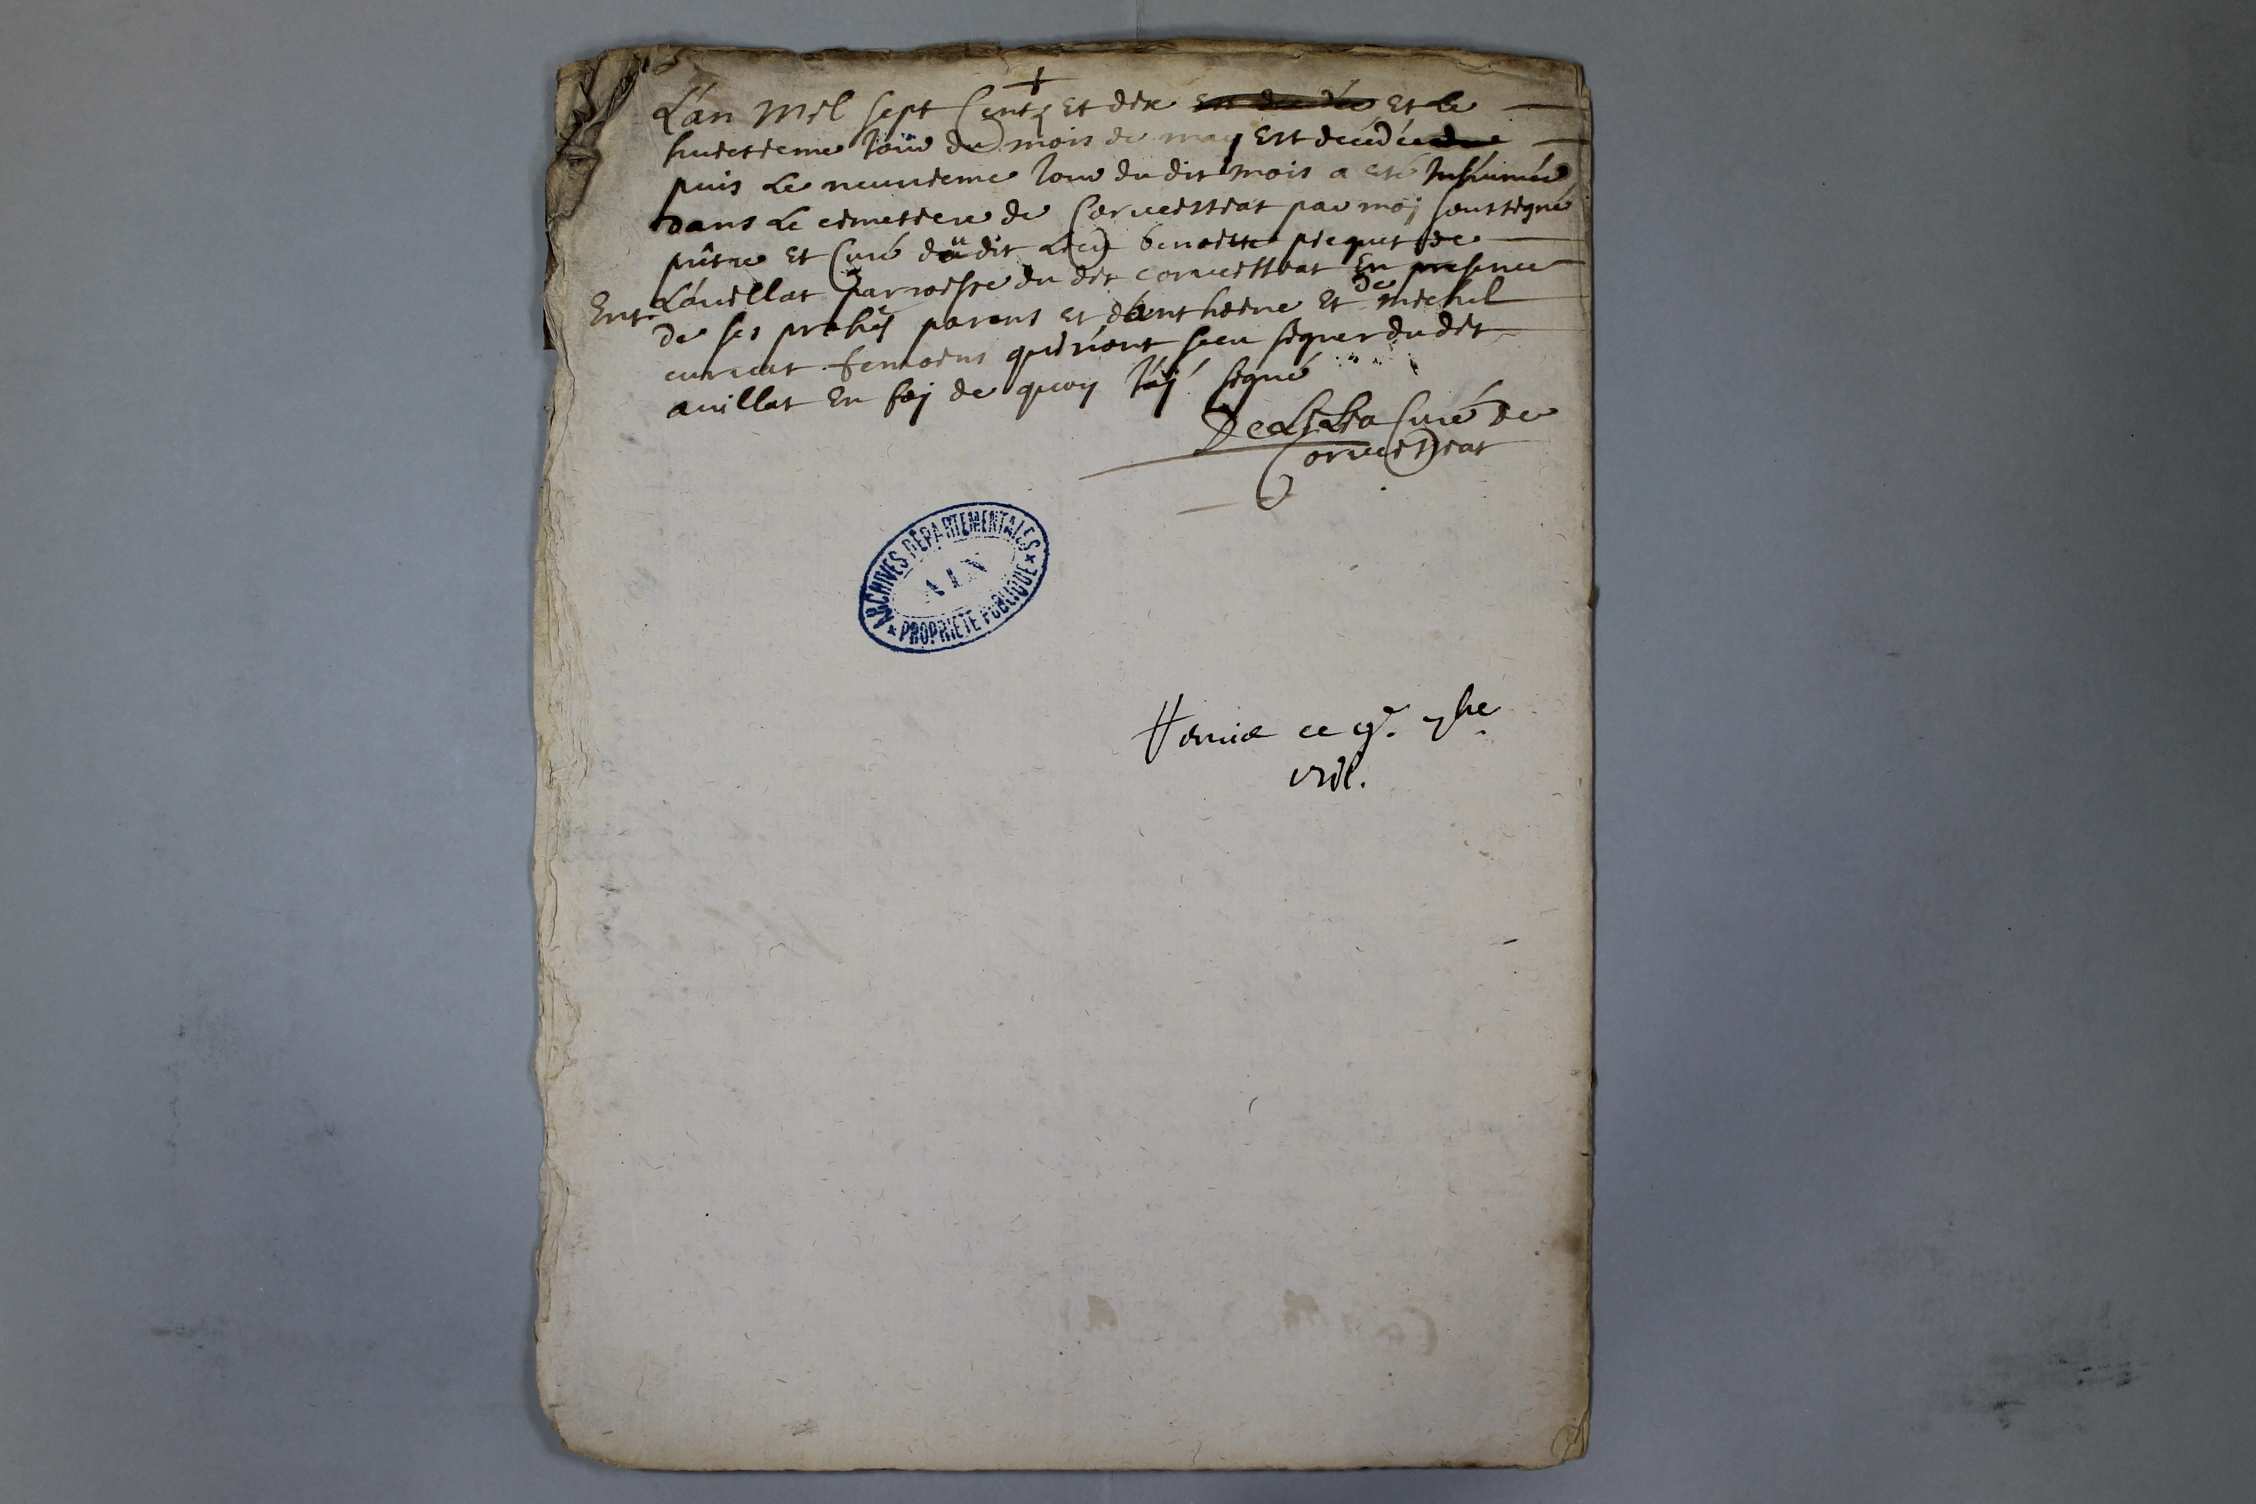 L'an Mil sept Centz Et dix Et Le
huictieme Jour du mois de may Est decedée
puis Le neuvieme Jour du dit mois a eté Inhumée
dans Le cimetiere de Corveissiat par moj soussigné
prêtre Et Curé du dit Lieu benoitte picquet de
L'avillat parroisse du dit corveissiat En presence
Ent. de ses prohes parens et d'anthoine Et de michel
temoins qui n'ont sceu signer du dit
avillat En foj de quoy J'aj signé
DeLiLia Curé de
Corveissiat
ARCHIVES DÉPARTEMENTALES
AIN
PROPRIETE PUBLIQUE
ce